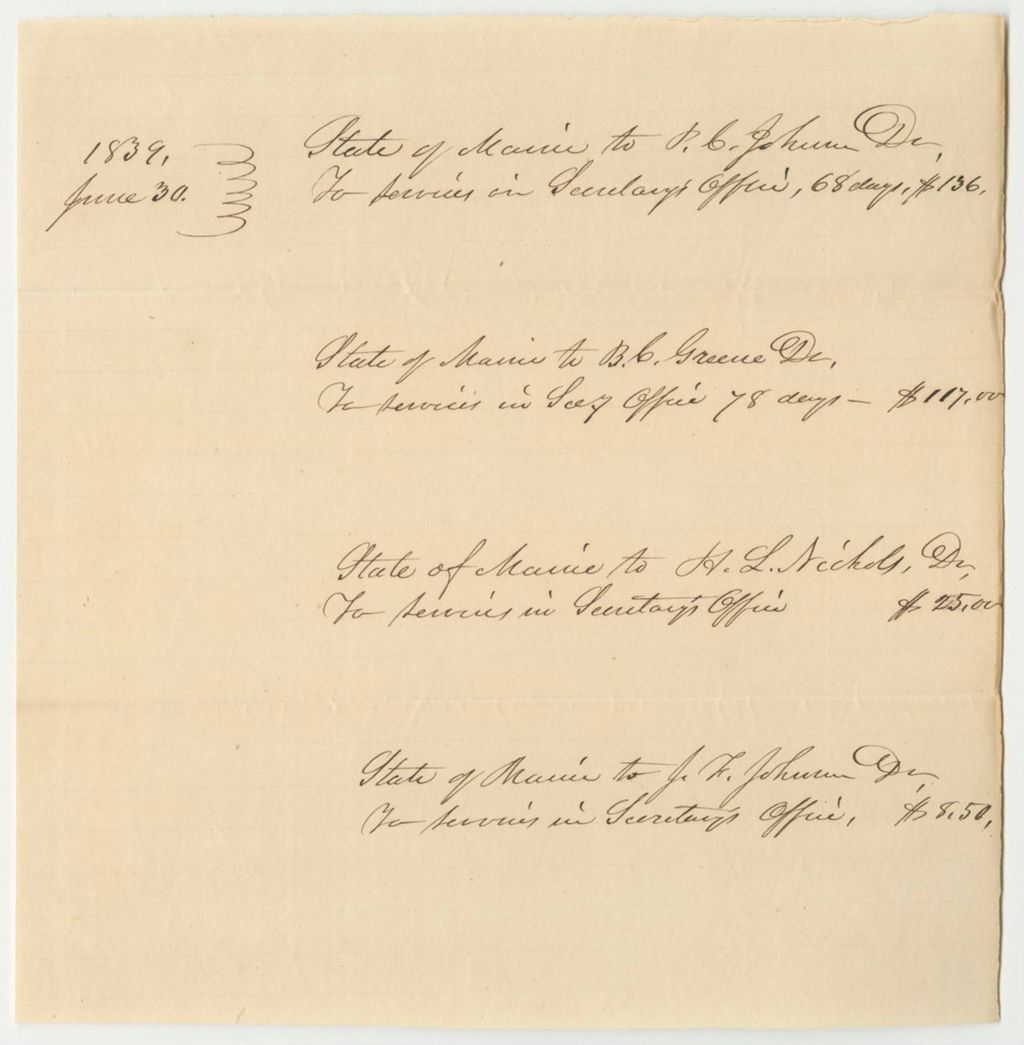 1839,
June 30.
State of Maine to P. C. Johnson Dr,
To services in Secretary's Office, 68 days, $136.
State of Maine to B. C. Greene Dr,
To services in Secy Office 78 days — $117.00
State of Maine to H. L. Nichols, Dr,
To services in Secretary's Office $25.00
State of Maine to J. F. Johnson Dr,
To services in Secretarys Office, $8.50,